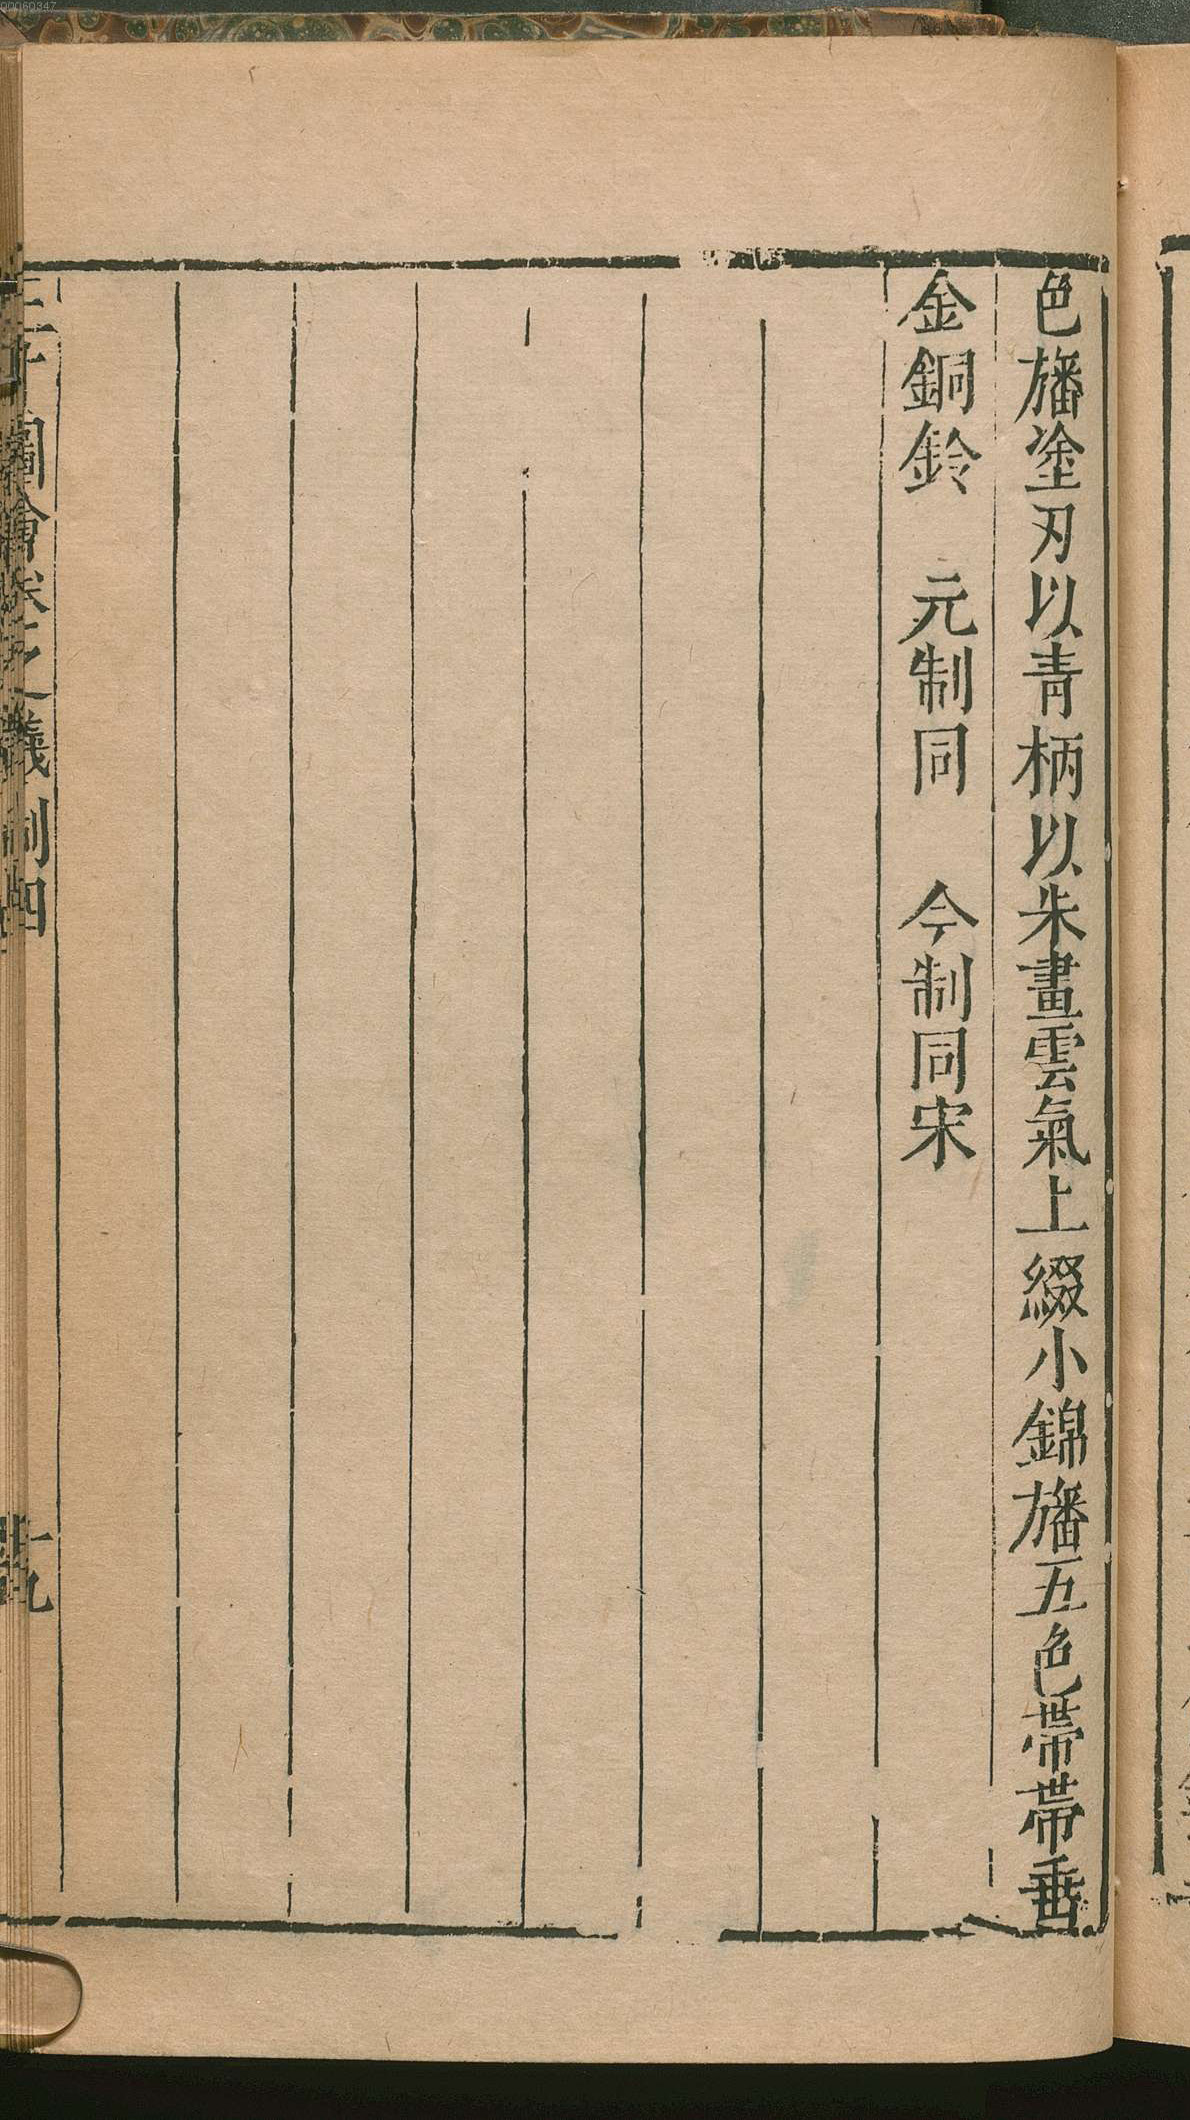 色旛塗刃以青柄以朱畫雲氣上綴小錦旛五色帶帶垂
金銅鈴　元制同　今制同宋
三才圖會卷之儀制四
十九
00060347